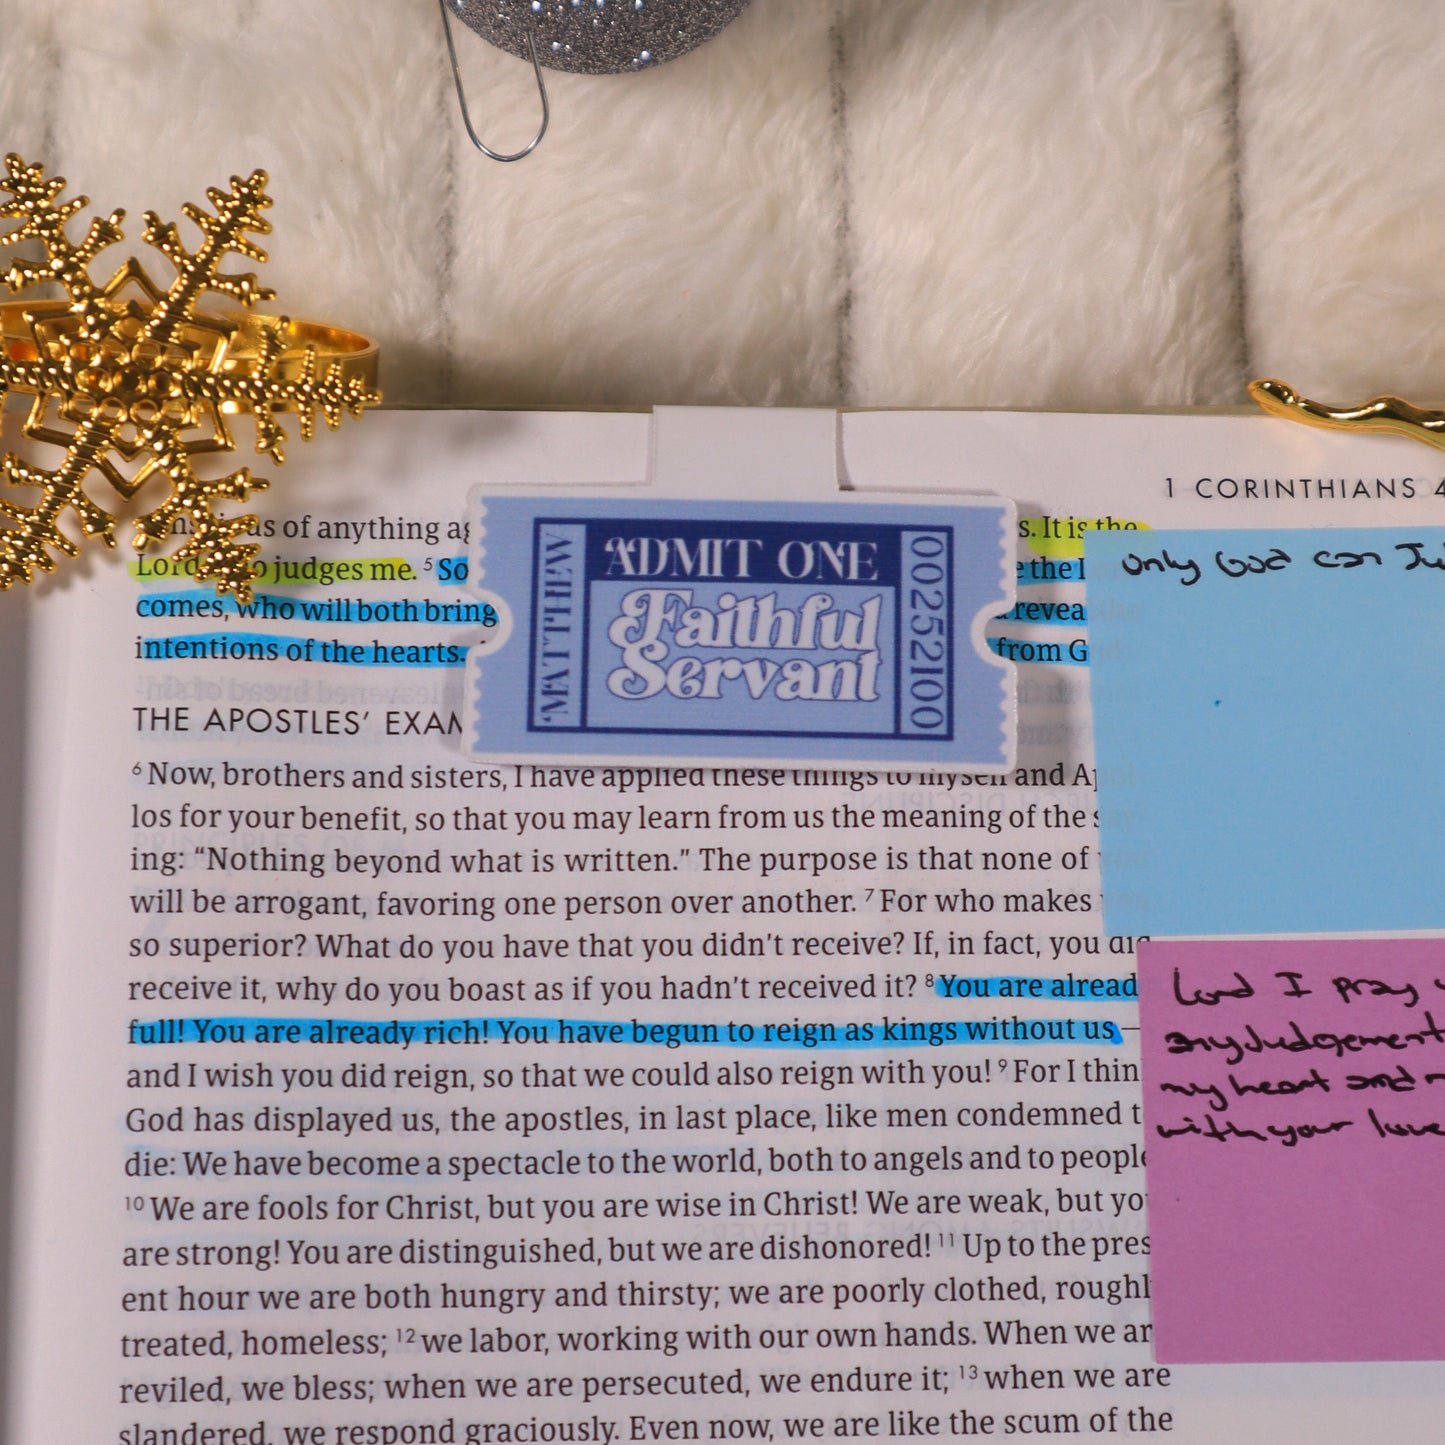 1 CORINTHIANS 4
of anything
s. It is the
Lord who judges me. ⁵ So
the
comes, who will both bring
intentions of the hearts.
from G
ADMIT ONE
MATTHEW
Faithful
Servant
00252100
THE APOSTLES’ EXAM
⁶ Now, brothers and sisters, I have applied these things to myself and Ap
los for your benefit, so that you may learn from us the meaning of the s
ing: “Nothing beyond what is written.” The purpose is that none of
will be arrogant, favoring one person over another. ⁷ For who makes
so superior? What do you have that you didn’t receive? If, in fact, you did
receive it, why do you boast as if you hadn’t received it? ⁸ You are alread
full! You are already rich! You have begun to reign as kings without us —
and I wish you did reign, so that we could also reign with you! ⁹ For I thin
God has displayed us, the apostles, in last place, like men condemned t
die: We have become a spectacle to the world, both to angels and to people
¹⁰ We are fools for Christ, but you are wise in Christ! We are weak, but yo
are strong! You are distinguished, but we are dishonored! ¹¹ Up to the pres
ent hour we are both hungry and thirsty; we are poorly clothed, roughl
treated, homeless; ¹² we labor, working with our own hands. When we ar
reviled, we bless; when we are persecuted, we endure it; ¹³ when we are
slandered, we respond graciously. Even now, we are like the scum of the
only God can Ju
Lord I pray
any Judgement
my heart and
with your love